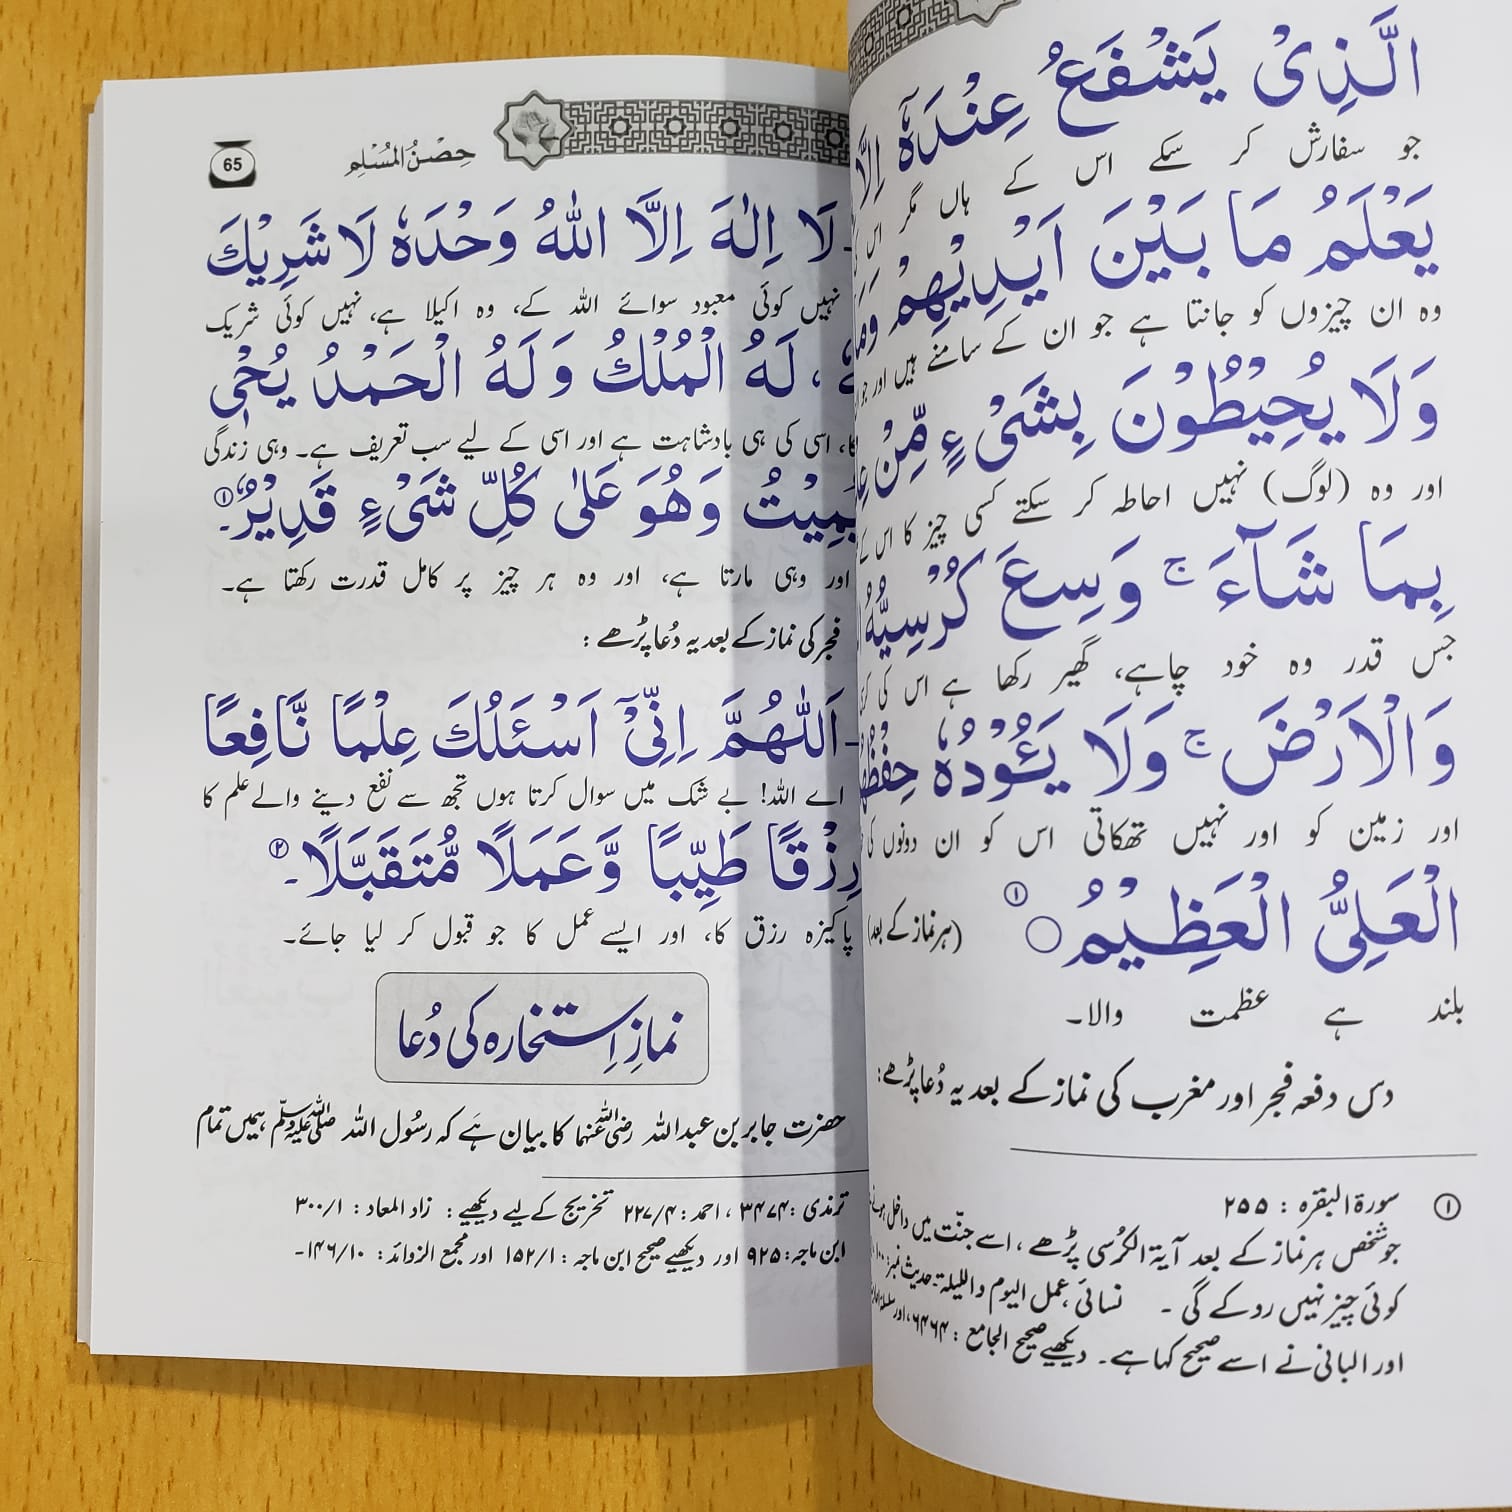 الَّذِىْ يَشْفَعُ عِنْدَهٗٓ اِلَّا
جو سفارش کر سکے اس کے ہاں مگر اس
يَعْلَمُ مَا بَيْنَ اَيْدِيْهِمْ وَمَا
وہ ان چیزوں کو جانتا ہے جو ان کے سامنے ہیں اور جو
وَلَا يُحِيْطُوْنَ بِشَىْءٍ مِّنْ
اور وہ (لوگ) نہیں احاطہ کر سکتے کسی چیز کا اس کے
بِمَا شَآءَ ۚ وَسِعَ كُرْسِيُّهُ
جس قدر وہ خود چاہے، گھیر رکھا ہے اس کی
وَالْاَرْضَ ۚ وَلَا يَـُٔوْدُهٗ حِفْظُهُ
اور زمین کو اور نہیں تھکاتی اس کو ان دونوں کی
الْعَلِىُّ الْعَظِيْمُ ○ ① (ہر نماز کے بعد)
بلند ہے عظمت والا۔
دس دفعہ فجر اور مغرب کی نماز کے بعد یہ دُعا پڑھے:
① سورۃ البقرہ : ۲۵۵
جو شخص ہر نماز کے بعد آیۃ الکرسی پڑھے، اسے جنّت میں داخل ہونے
کوئی چیز نہیں روکے گی ۔ نسائی، عمل الیوم واللیلۃ۔ حدیث نمبر: ۱۰۰
اور البانی نے اسے صحیح کہا ہے۔ دیکھیے صحیح الجامع : ۶۴۶۴، اور
حِصْنُ الْمُسْلِم
65
لَا اِلٰهَ اِلَّا اللّٰهُ وَحْدَهٗ لَا شَرِيْكَ
نہیں کوئی معبود سوائے اللہ کے، وہ اکیلا ہے، نہیں کوئی شریک
، لَهُ الْمُلْكُ وَلَهُ الْحَمْدُ يُحْيٖ
کا، اسی کی ہی بادشاہت ہے اور اسی کے لیے سب تعریف ہے۔ وہی زندگی
يُمِيْتُ وَهُوَ عَلٰى كُلِّ شَىْءٍ قَدِيْرٌ۔①
اور وہی مارتا ہے، اور وہ ہر چیز پر کامل قدرت رکھتا ہے۔
فجر کی نماز کے بعد یہ دُعا پڑھے :
اَللّٰهُمَّ اِنِّىْٓ اَسْئَلُكَ عِلْمًا نَّافِعًا
اے اللہ! بے شک میں سوال کرتا ہوں تجھ سے نفع دینے والے علم کا
رِزْقًا طَيِّبًا وَّعَمَلًا مُّتَقَبَّلًا۔②
پاکیزہ رزق کا، اور ایسے عمل کا جو قبول کر لیا جائے۔
نمازِ استخارہ کی دُعا
حضرت جابر بن عبداللہ رضی اللہ عنہما کا بیان ہے کہ رسُول اللہ صلی اللہ علیہ وسلم ہمیں تمام
ترمذی :۳۴۷۴ ، احمد : ۲۲۷/۴ تخریج کے لیے دیکھیے : زاد المعاد : ۳۰۰/۱
ابن ماجہ: ۹۲۵ اور دیکھیے صحیح ابن ماجہ : ۱۵۲/۱ اور مجمع الزوائد : ۱۴۶/۱۰۔